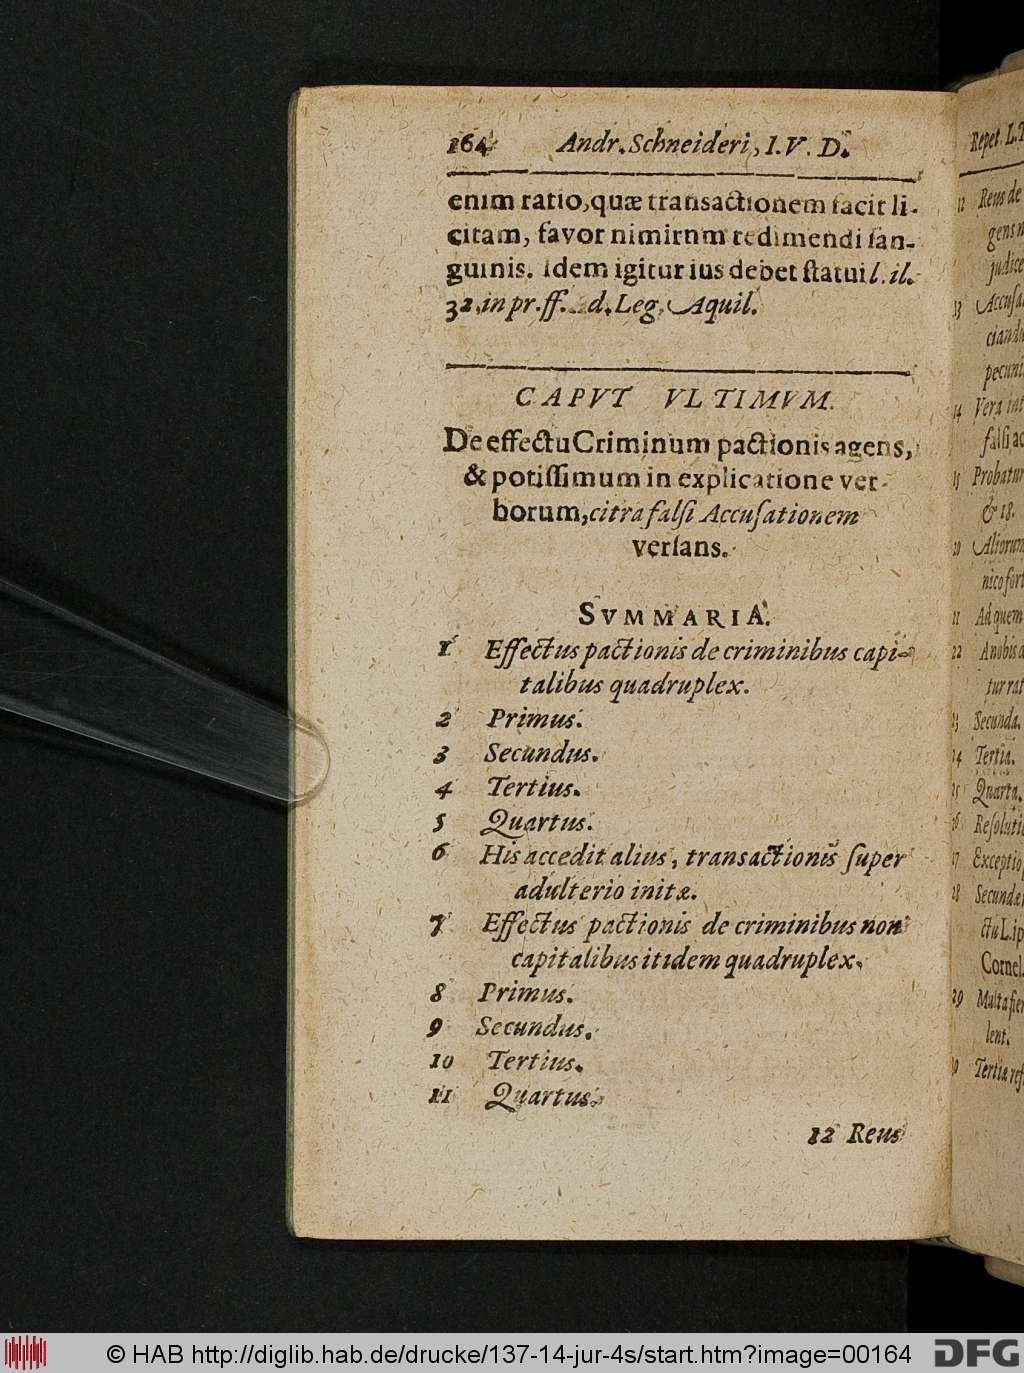 164 Andr. Schneideri, I. V. D.
enim ratio, quæ transactionem facit li-
citam, favor nimirnm redimendi ſan-
guinis. Idem igitur ius debet ſtatui l. il.
32. in pr. ff. ad. Leg. Aquil.
CAPVT VLTIMVM.
De effectu Criminum pactionis agens,
& potiſſimum in explicatione ver-
borum, citra falſi Accuſationem
verſans.
SVMMARIA.
1 Effectus pactionis de criminibus capi-
talibus quadruplex.
2 Primus.
3 Secundus.
4 Tertius.
5 Quartus.
6 His accedit alius, transactionis ſuper
adulterio initæ.
7 Effectus pactionis de criminibus non
capitalibus itidem quadruplex.
8 Primus.
9 Secundus.
10 Tertius.
11 Quartus.
12 Reus
Repet. L.
12 Reus de
judice
13
14 Vera int
falſi ac
15 Probatur
& 18.
20 Aliorum
21 Ad quem
22
tur rat
23 Secunda.
24 Tertia.
25 Quarta.
26
27 Exceptio
28
ctu L. ip
Cornel.
29 Multa
lent.
© HAB http://diglib.hab.de/drucke/137-14-jur-4s/start.htm?image=00164
DFG